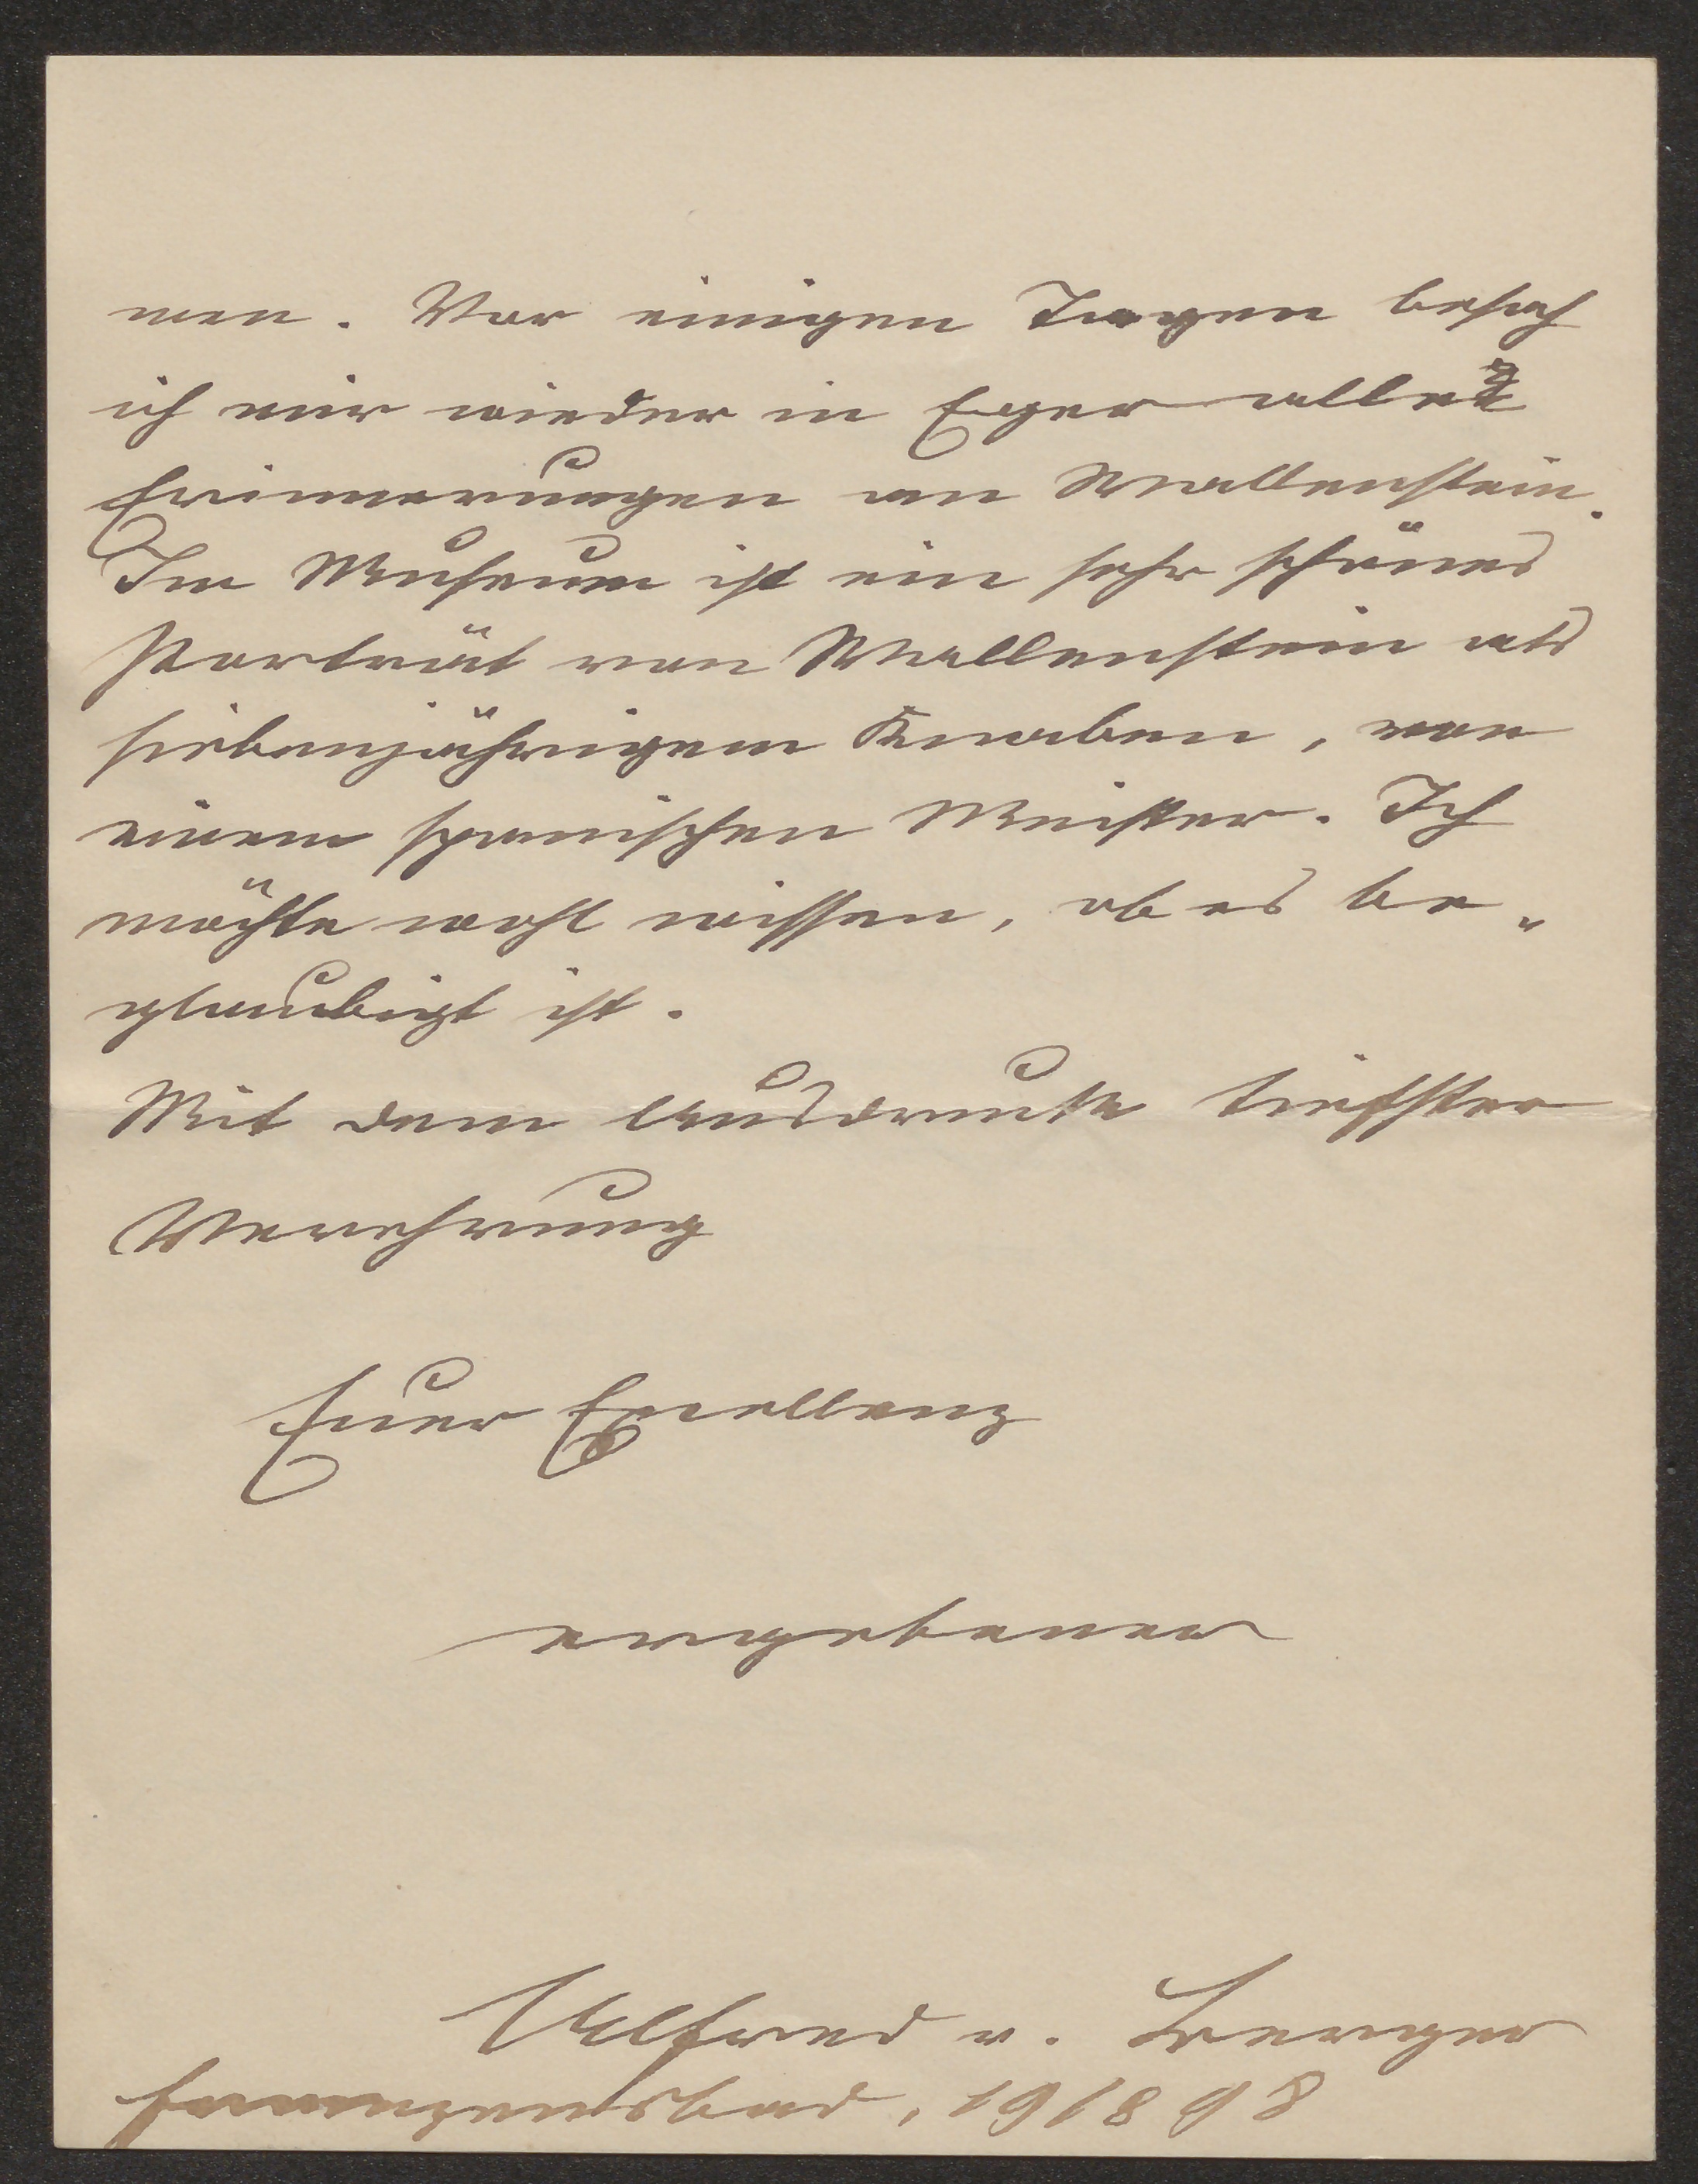 men. Vor einigen Tagen besah
ich mir wieder in Eger alle
Erinnerungen an Wallenstein.
Im Museum ist ein sehr schönes
Porträt von Wallenstein als
siebenjährigem Knaben, von
einem spanischen Meister. Ich
möchte wohl wissen, ob es be„
glaubigt ist.
Mit dem Ausdrucke tiefster
Verehrung
Euer Excellenz
ergebener
Alfred v. Berger
Franzensbad,